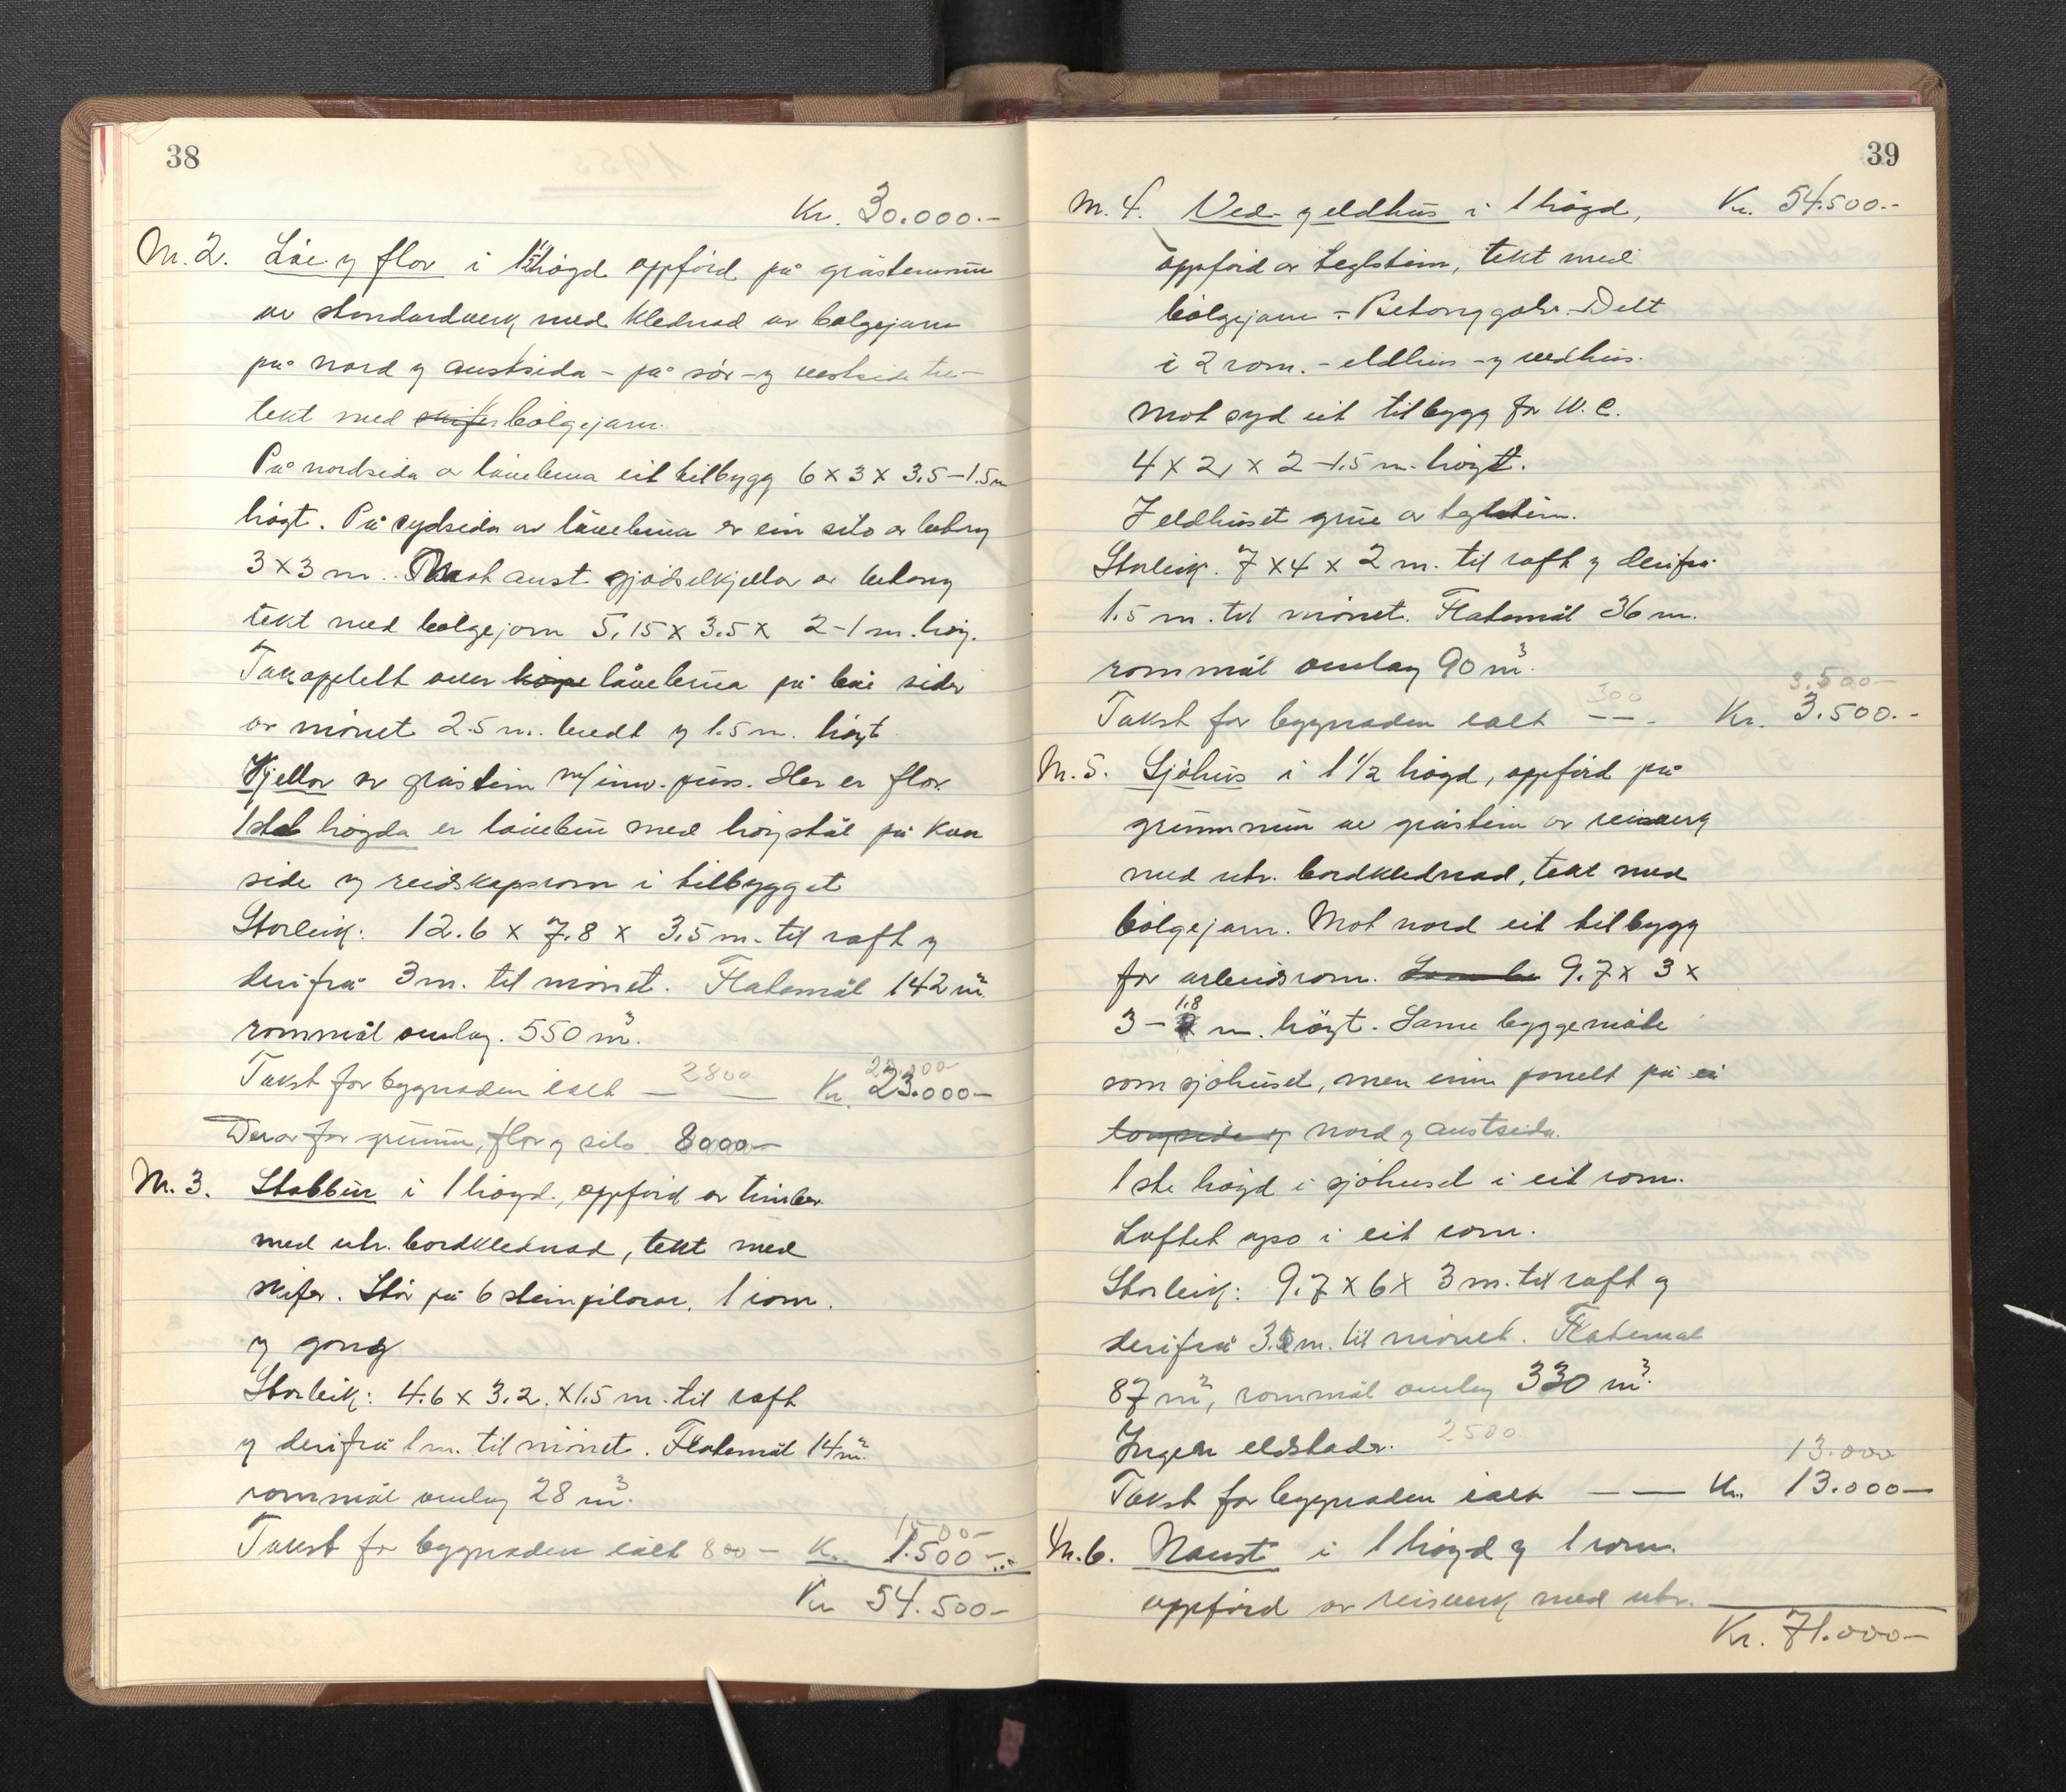 38
Kr. 30.000.-
M. 2. Löe og flor i 1½ högd oppförd på gråsteinmur
av standardverk med klednad av bølgejarn
på nord og austsida - på sör- og vestsida tre-
tekt med skifer bølgejarn.
På nordsida av låvebrua eit tilbygg 6 x 3 x 3.5-1.5m
högt. På sydsida av låvebrua er ein silo av betong
3 x 3 m. Mot aust gjödselkjellar av betong
tekt med bølgejarn 5,15 x 3.5 x 2-1 m. høg.
Takopplett over låvebrua på bæ sider
av mönet 2.5 m. bredt og 1.5 m. högt
Kjellar av gråstein m/innv. puss. Her er flor.
1ste högda er låvebru med høystål på kvar
side og reidskapsrom i tilbygget
Storleik: 12.6 x 7.8 x 3.5 m. til raft og
derifrå 3 m. til mönet. Flatemål 142 m²
rommål omlag. 550 m³.
Takst for bygnaden ialt — 2800 — Kr. 23.000-
23.000
Derav for grunn, flor og silo. 8000-
M. 3. Stabbur i 1 högd., oppförd av timber
med utv. bordklednad, tekt med
skifer. Står på 6 steinpilarar. 1 rom.
og gong
Storleik: 4.6 x 3.2. x 1.5 m. til raft
og derifrå 1 m. til mönet. Flatemål 14 m²
rommål omlag 28 m³.
1500-
Takst for bygnaden ialt 800 - K. 1.500-
Kr 54.500-
39
M. 4. Ved- og eldhus i 1 högd, Kr. 54.500.-
oppförd av teglstein, tekt med
bølgejarn - Betonggolv. - Delt
i 2 rom. - eldhus - og vedhus.
Mot syd eit tilbygg for W.C.
4 x 2, x 2-1.5 m. högt.
I eldhuset grue av teglstein.
Storleik. 7 x 4 x 2 m. til raft og derifrå
1.5 m. til mönet. Flatemål 36 m.
rommål omlag 90 m³.
300 3.500-
Takst for bygnaden ialt — — - Kr. 3.500.-
M. 5. Sjöhus i 1 1/2 högd, oppförd på
grunnmur av gråstein av reisverk
med utv. bordklednad, tekt med
bølgejarn. Mot nord eit tilbygg
for arbeidsrom. 9.7 x 3 x
3 - 1.8 m. högt. Same byggemåte
som sjöhuset, men innv panelt på ei
langside og nord og austsida.
1 ste högd i sjöhuset i eit rom.
Loftet også i eit rom.
Storleik: 9.7 x 6 x 3 m. til raft og
derifrå 3.5 m. til mönet. Flatemål
87 m², rommål omlag 330 m³.
Ingen eldstader. 2500
13.000
Takst for bygnaden ialt — — Kr. 13.000-
M. 6. Naust i 1 högd og 1 rom.
oppförd av reisverk med utv.
Kr. 71.000-